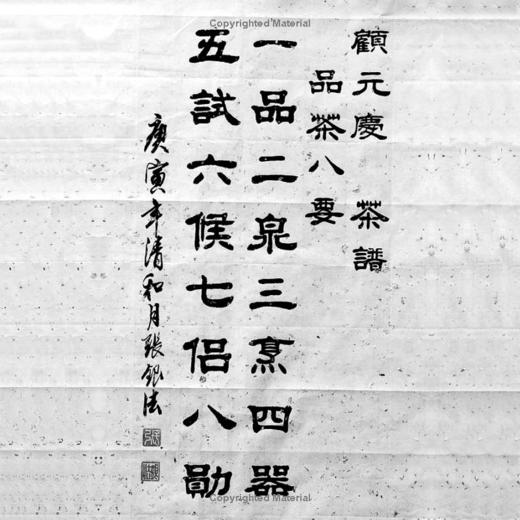 Copyrighted Material
顧元慶 茶譜
品茶八要
一品二泉三烹四器
五試六候七侣八勛
庚寅年清和月張銀法
Copyrighted Material